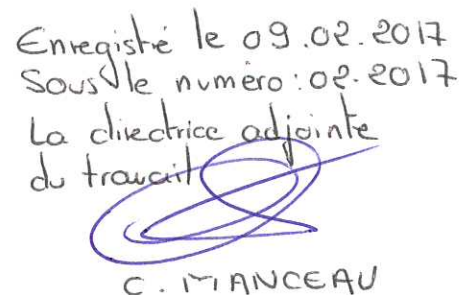 Enregistré le 09.02.2017
Sous le numéro : 02.2017
La directrice adjointe
du travail
C. MANCEAU